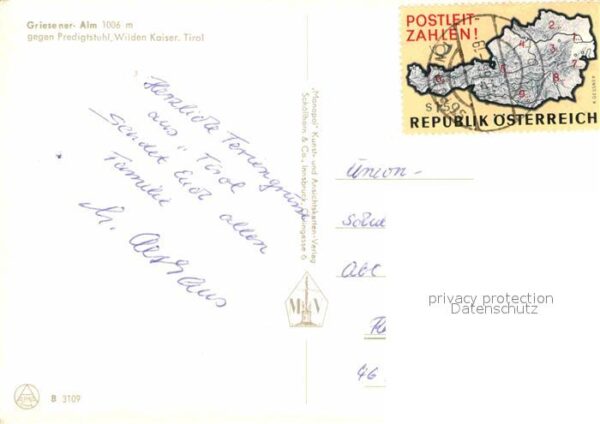 Griesener- Alm 1006 m
gegen Predigtstuhl, Wilden Kaiser, Tirol
Herzliche Feriengrüsse
aus Tirol
sendet Euch allen
Familie
M.
B 3109
"Monopol" Kunst- und Ansichtskarten-Verlag
Schöllhorn & Co., Innsbruck,
M V
POSTLEIT-
ZAHLEN!
2.
1.
3.
4.
5.
6.
7.
8.
9.
S 1.50
REPUBLIK ÖSTERREICH
A. GESSNER
Union-
Abt
46
privacy protection
Datenschutz